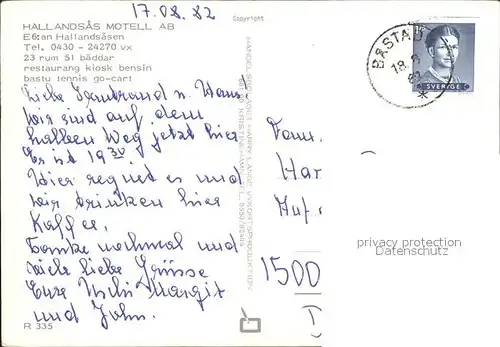 17.08.82
Copyright
HALLANDSÅS MOTELL AB
E6:an Hallandsåsen
Tel. 0430 - 24270 vx
23 rum 51 bäddar
restaurang kiosk bensin
bastu tennis go-cart
BÅSTAD
18. 8
82
SVERIGE
Liebe u. Hans
wir sind auf dem
halben Weg jetzt hier
Es ist 19
Hier regnet es und
wir trinken hier
Kaffee.
Danke nochmal und
viele liebe Grüsse
Eure Uschi Margit
und John.
Fam.
Har
Auf
1500
privacy protection
Datenschutz
R 335